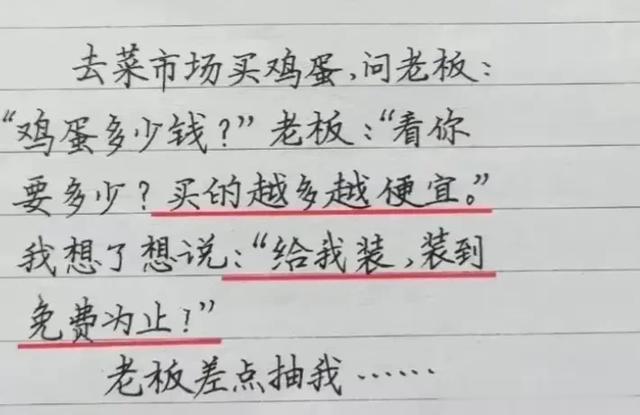 去菜市场买鸡蛋,问老板:
“鸡蛋多少钱?”老板:“看你
要多少?买的越多越便宜。”
我想了想说:“给我装,装到
免费为止!”
老板差点抽我……